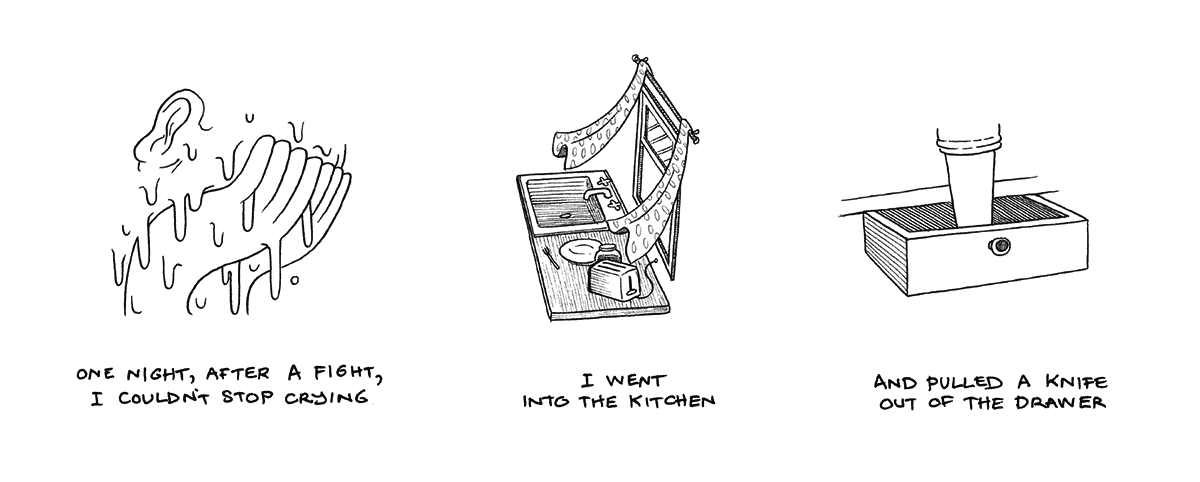 ONE NIGHT, AFTER A FIGHT,
I COULDN'T STOP CRYING
I WENT
INTO THE KITCHEN
AND PULLED A KNIFE
OUT OF THE DRAWER